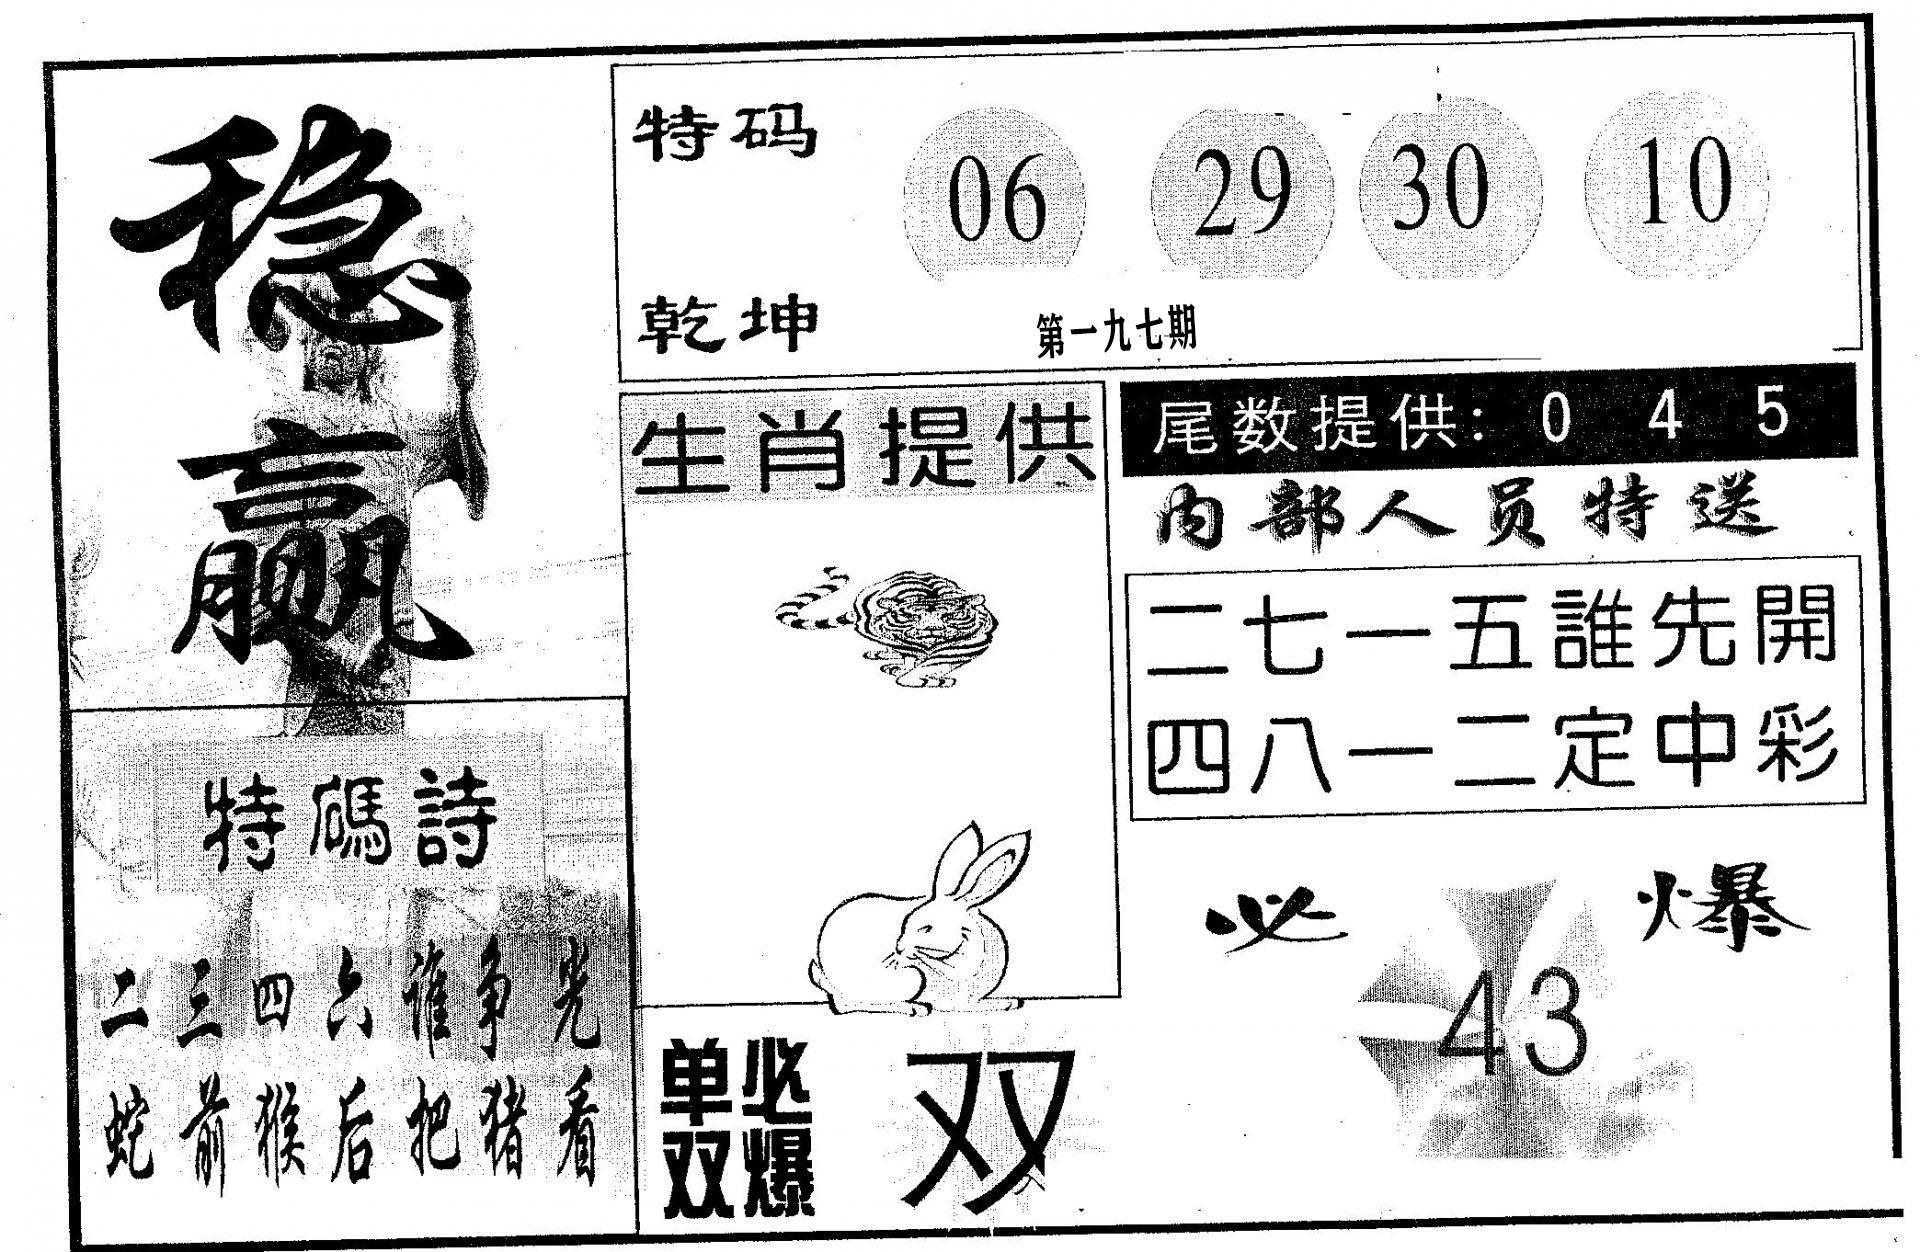 稳
赢
特码
06 29 30 10
乾坤
第一九七期
生肖提供
尾数提供: 0 4 5
内部人员特送
二七一五誰先開
四八一二定中彩
特碼詩
二三四六谁争光
蛇前猴后把猪看
必 爆
43
单必
双爆
双